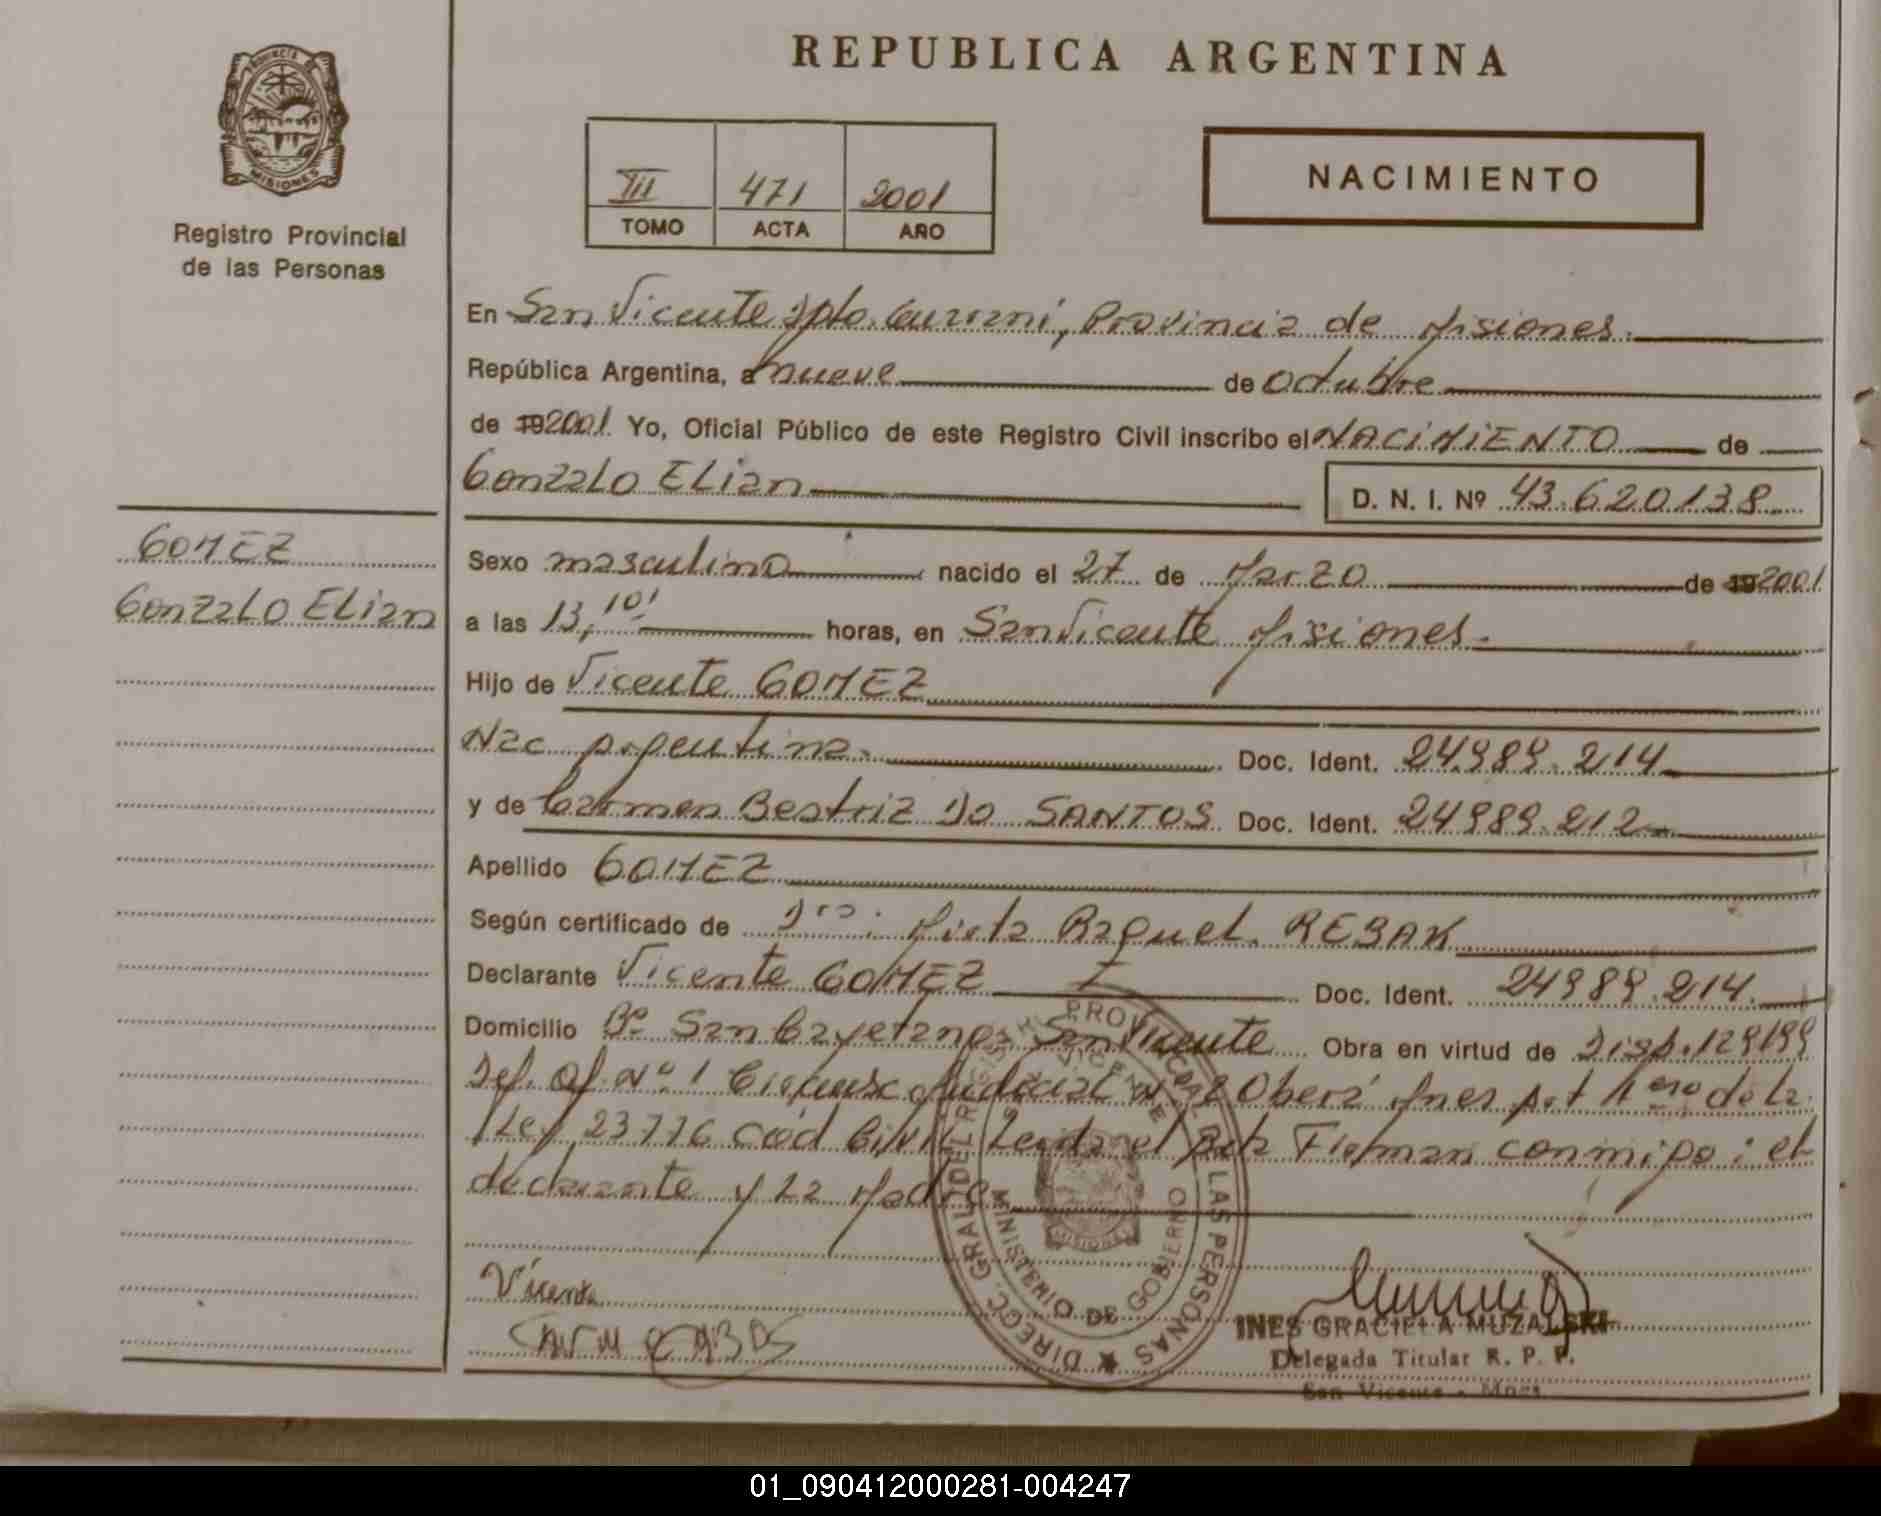 PROVINCIA DE
MISIONES
Registro Provincial
de las Personas
GOMEZ
Gonzalo Elian
REPUBLICA ARGENTINA
III 471 2001
TOMO ACTA AÑO
NACIMIENTO
En San Vicente Dpto. Guarani, Provincia de Misiones.
República Argentina, a nueve de octubre
de 192001 Yo, Oficial Público de este Registro Civil inscribo el NACIMIENTO de
Gonzalo Elian D. N. I. Nº 43.620138
Sexo masculino nacido el 27 de Marzo de 192001
a las 13,10' horas, en San Vicente Misiones.
Hijo de Vicente GOMEZ
Nac argentina. Doc. Ident. 24989.214
y de Carmen Beatriz Do SANTOS Doc. Ident. 24989.212
Apellido GOMEZ
Según certificado de Dra. Mirta Raquel REBAK
Declarante Vicente GOMEZ Doc. Ident. 24989.214.
Domicilio Bº San Cayetano San Vicente Obra en virtud de Disp. 129/99
Def. Of. Nº 1 Circunsc. Judicial Oberá Mnes de la
Ley 23776 cód Civil Leida el Acta Firman conmigo: el
declarante y la Madre
Vicente
DIRECC. GRAL DEL REGISTRO PROVINCIAL DE LAS PERSONAS
SAN VICENTE
MINISTERIO DE GOBIERNO
MISIONES
INES GRACIELA MUZALSKI
Delegada Titular R. P. P.
San Vicente - Mnes.
01_090412000281-004247